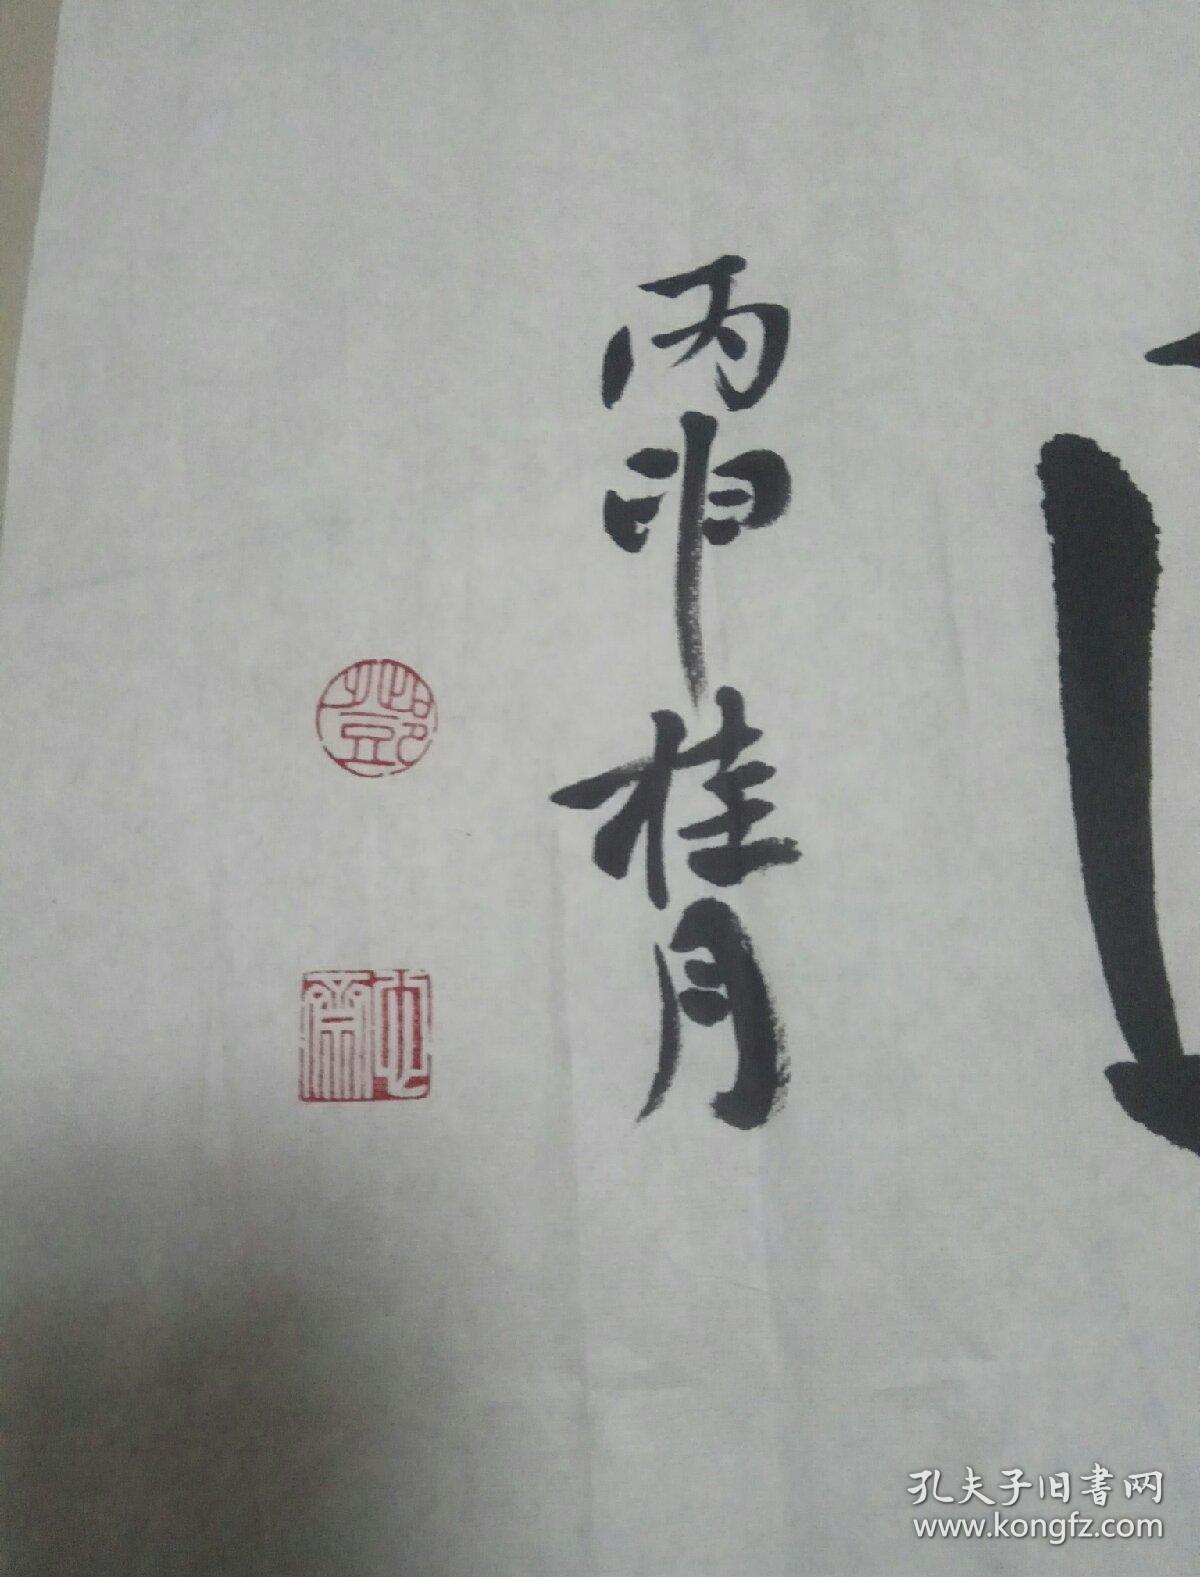 丙申桂月
鄧
孔夫子旧書网
www.kongfz.com